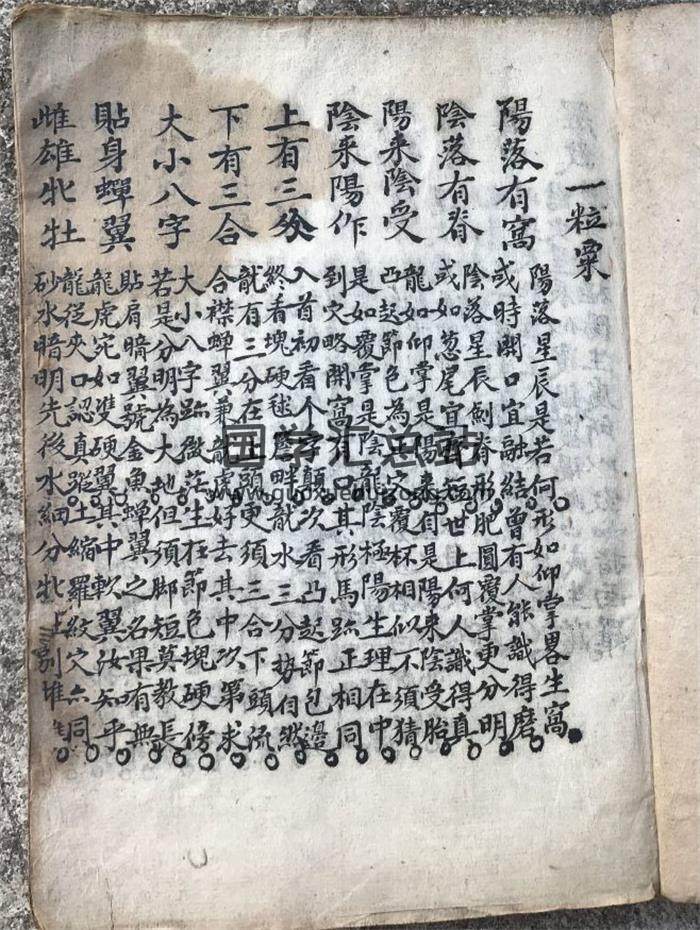 一粒粟
陽落有窩
陽落星辰是若何 形如仰掌畧生窩
或時開口宜融結 曾有人能識得磨
陰落有脊
陰落星辰劍脊形 肥圓覆掌更分明
或如葱尾宜 世上何人識得真
陽来陰受
龍如仰掌是陽来 自是陽来陰受胎
凸起節色為 穴 覆杯相似不須猜
陰来陽作
是如覆掌是陰龍 陰極陽生理在中
到穴略開窩 口 其形馬跡正相同
上有三分
入首初看个字顛 次看凸起節包邊
終看塊硬毬簷畔 龍水三分勢自然
下有三合
龍有三分在上頭 更須三合下頭流
合襟蟬翼兼龍虎 好去其中次第求
大小八字
大小八字跡微茫 生在節色塊硬傍
若是分明為大地 但須脚短莫教長
貼身蟬翼
貼肩暗翼號金魚 蟬翼之名果有無
龍虎宛如雙硬翼 其中軟翼汝知乎
雌雄牝牡
龍從夾口認真蹤 土縮羅紋穴亦同
砂水暗明先後水 細分牝 別
国学汇总站